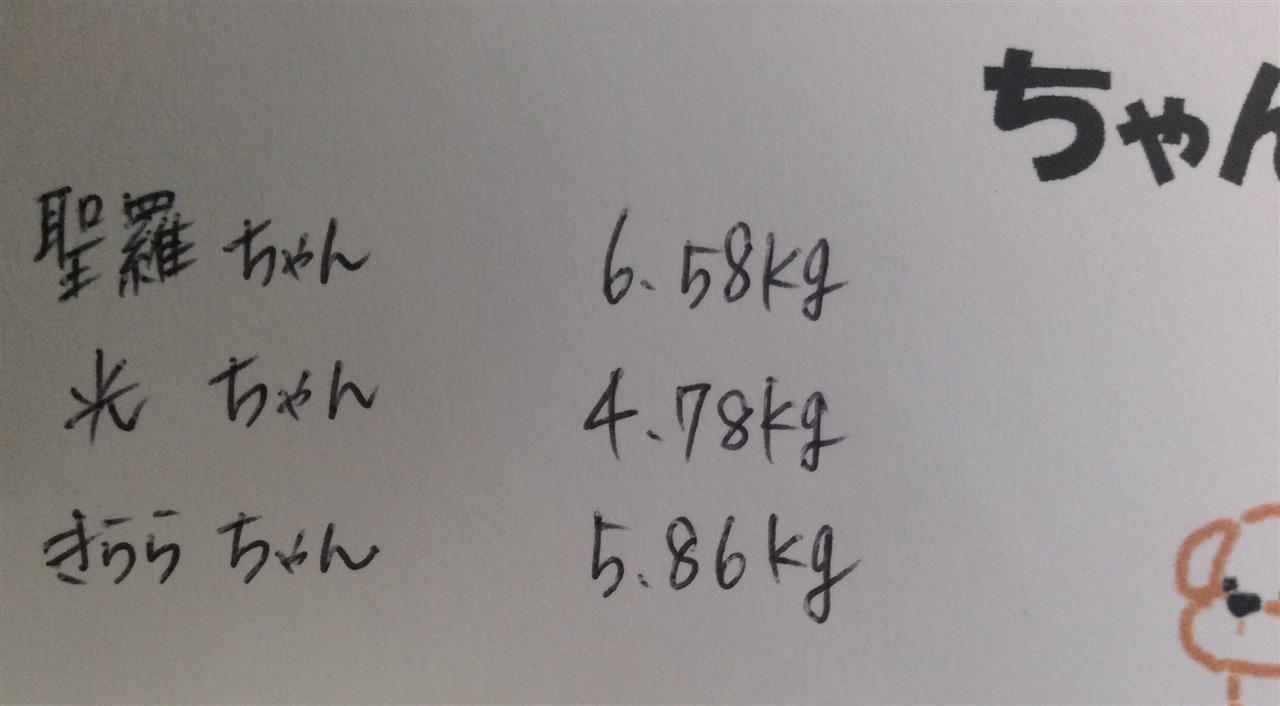 ちゃん
聖羅 ちゃん 6.58kg
光 ちゃん 4.78kg
きらら ちゃん 5.86kg